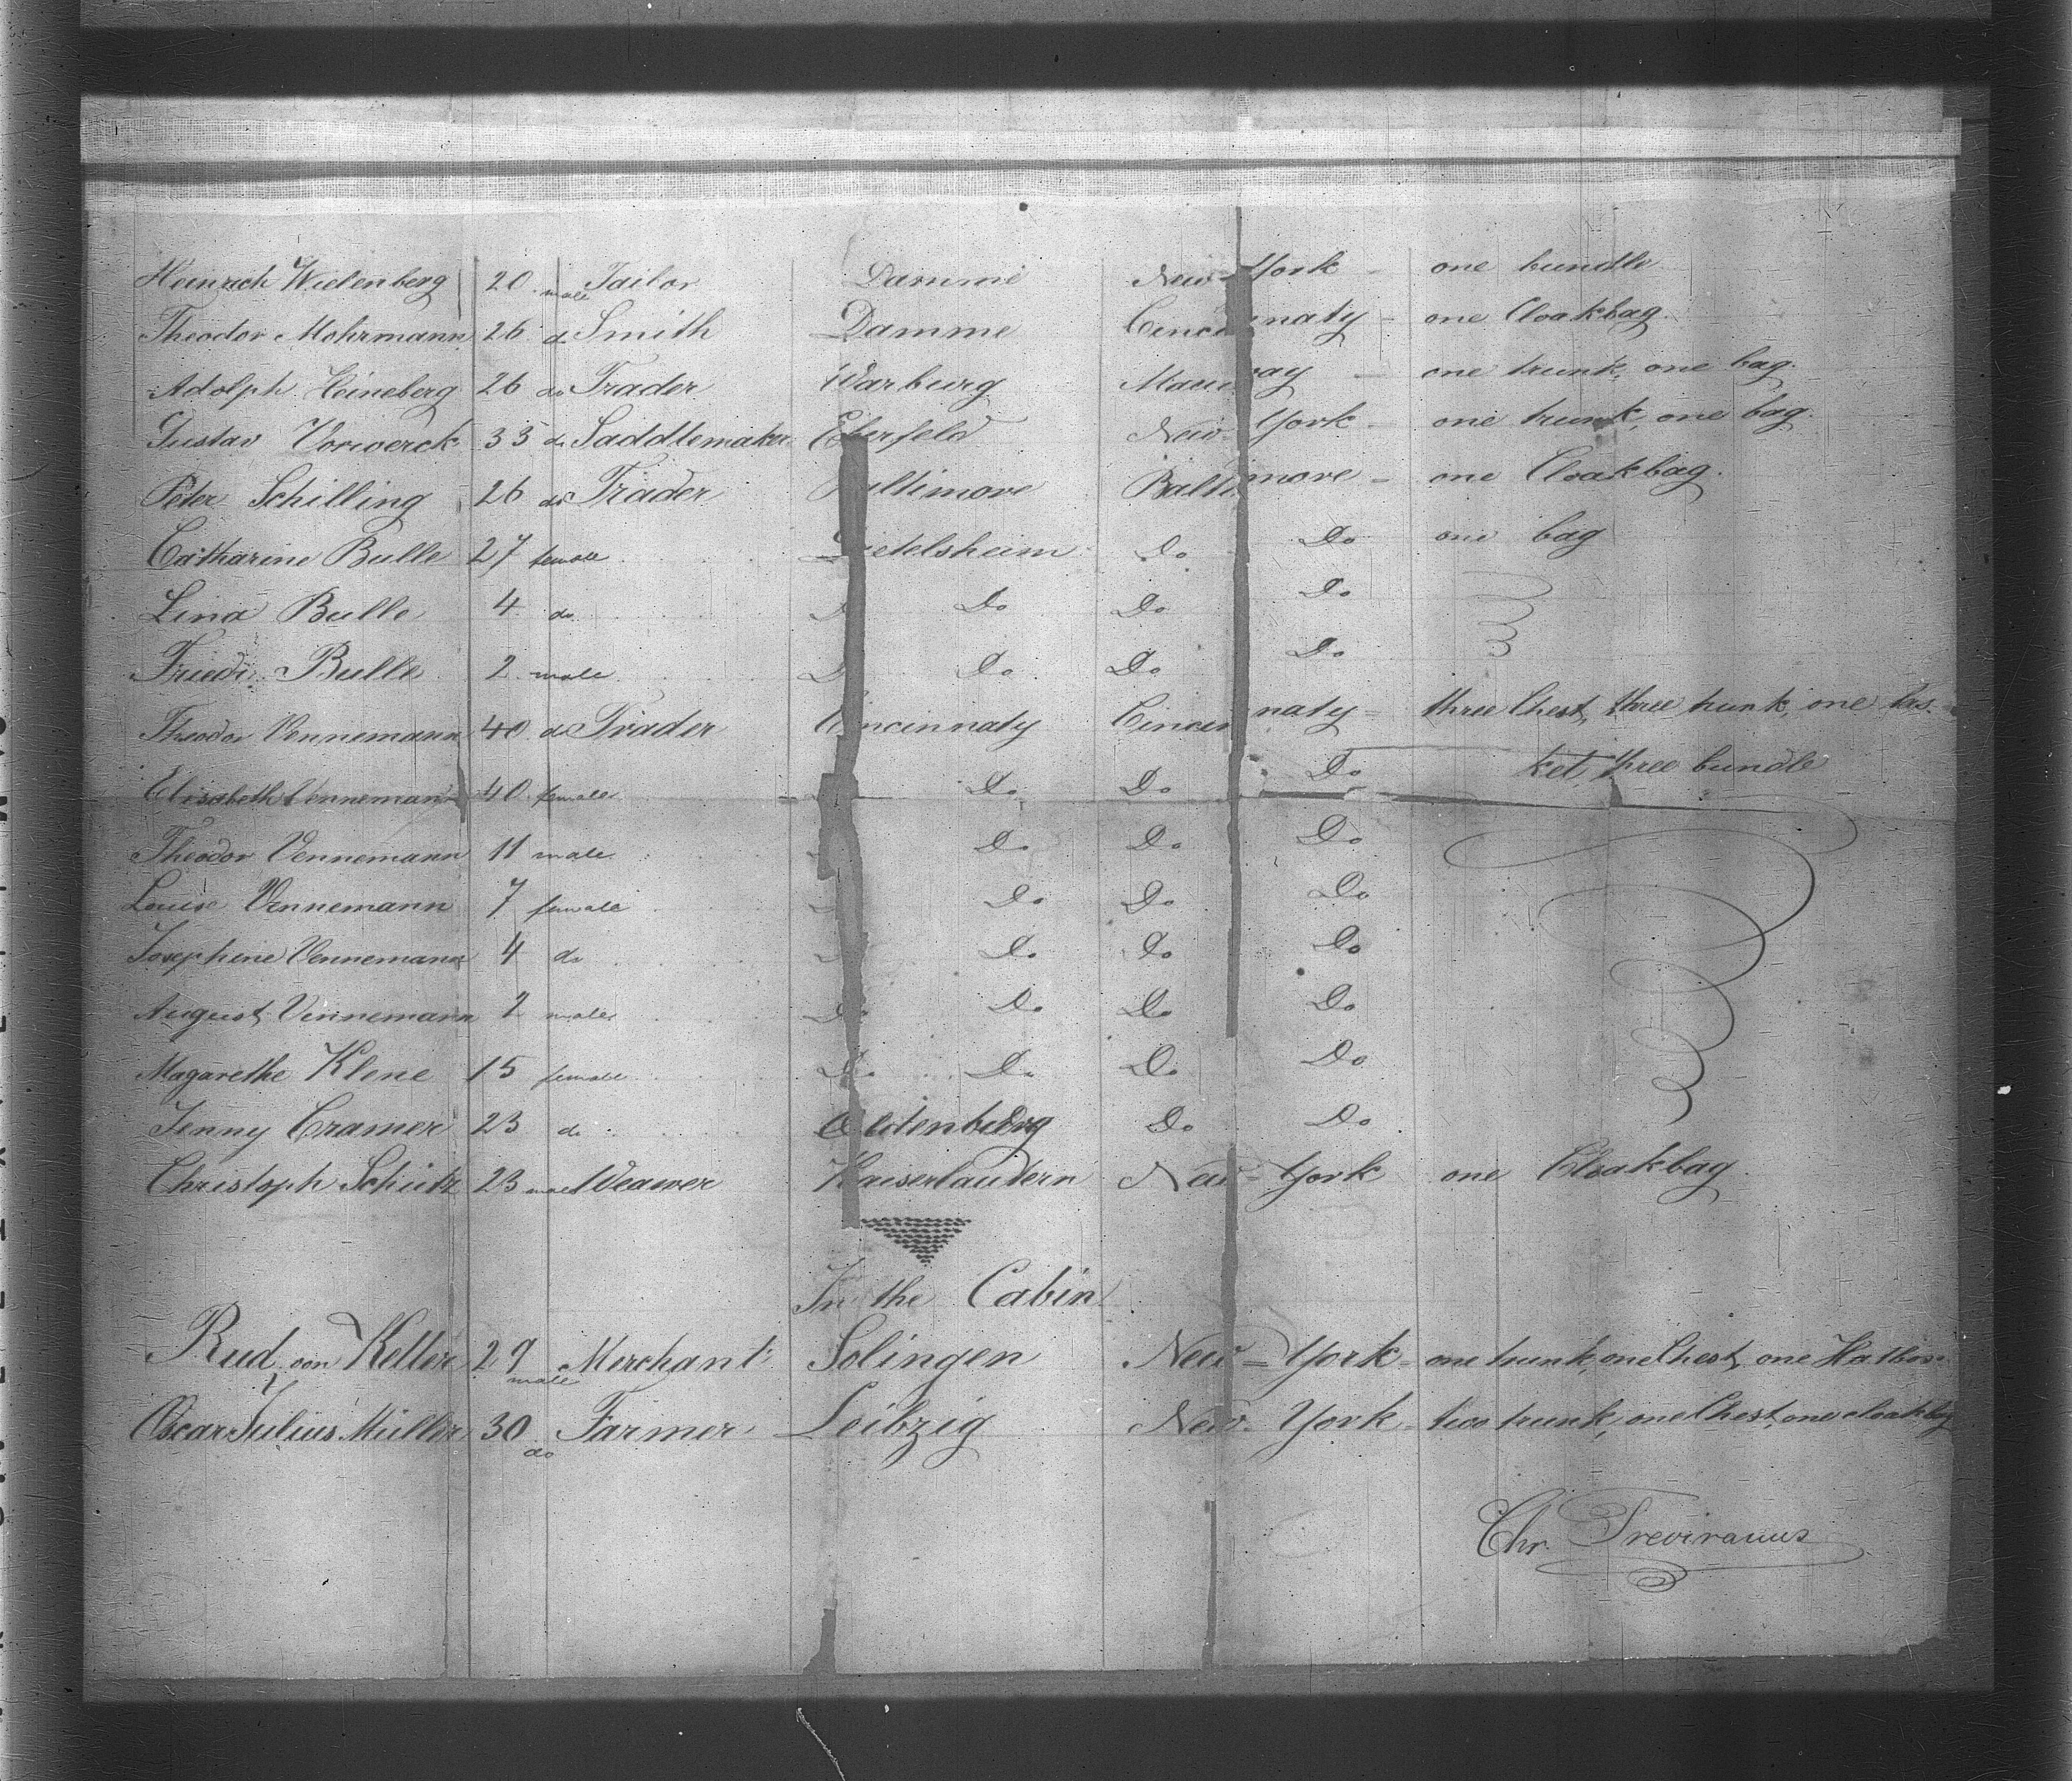 Heinrich Wielenberg 20 male Tailor Damme New York - one bundle
Theodor Mohrmann 26 do Smith Damme Cincinnaty - one Cloakbag.
Adolph Heineberg 26 do Trader Warburg - one trunk, one bag.
Gustav Vorwerck 33 do Saddlemaker Elberfeld New York - one trunk, one bag.
Peter Schilling 26 do Trader Baltimore Baltimore - one Cloakbag.
Catharine Bulle 27 female Do Do one bag
Lina Bulle 4 do Do Do Do
Friedr. Bulle 2 male Do Do Do
Theodor Vennemann 40 do Trader Cincinnaty Cincinnaty - three Chest, three trunk, one bas-
Elisabeth Vennemann 40 female Do Do Do ket, three bundle
Theodor Vennemann 11 male Do Do Do
Louise Vennemann 7 female Do Do Do
Josephine Vennemann 4 do Do Do Do
August Vennemann 2 male Do Do Do Do
Magarethe Klene 15 female Do Do Do Do
Jenny Cramer 23 do Oldenburg Do Do
Christoph Schütz 23 male Weawer Kaiserlautern New-York one Cloakbag
In the Cabin
Rud. von Keller 29 male Merchant Solingen New-York - one trunk, one Chest, one Hatbox.
Oscar Julius Müller 30 do Farmer Leibzig New-York - two trunk, one Chest, one cloakbag
Chr. Treviranus